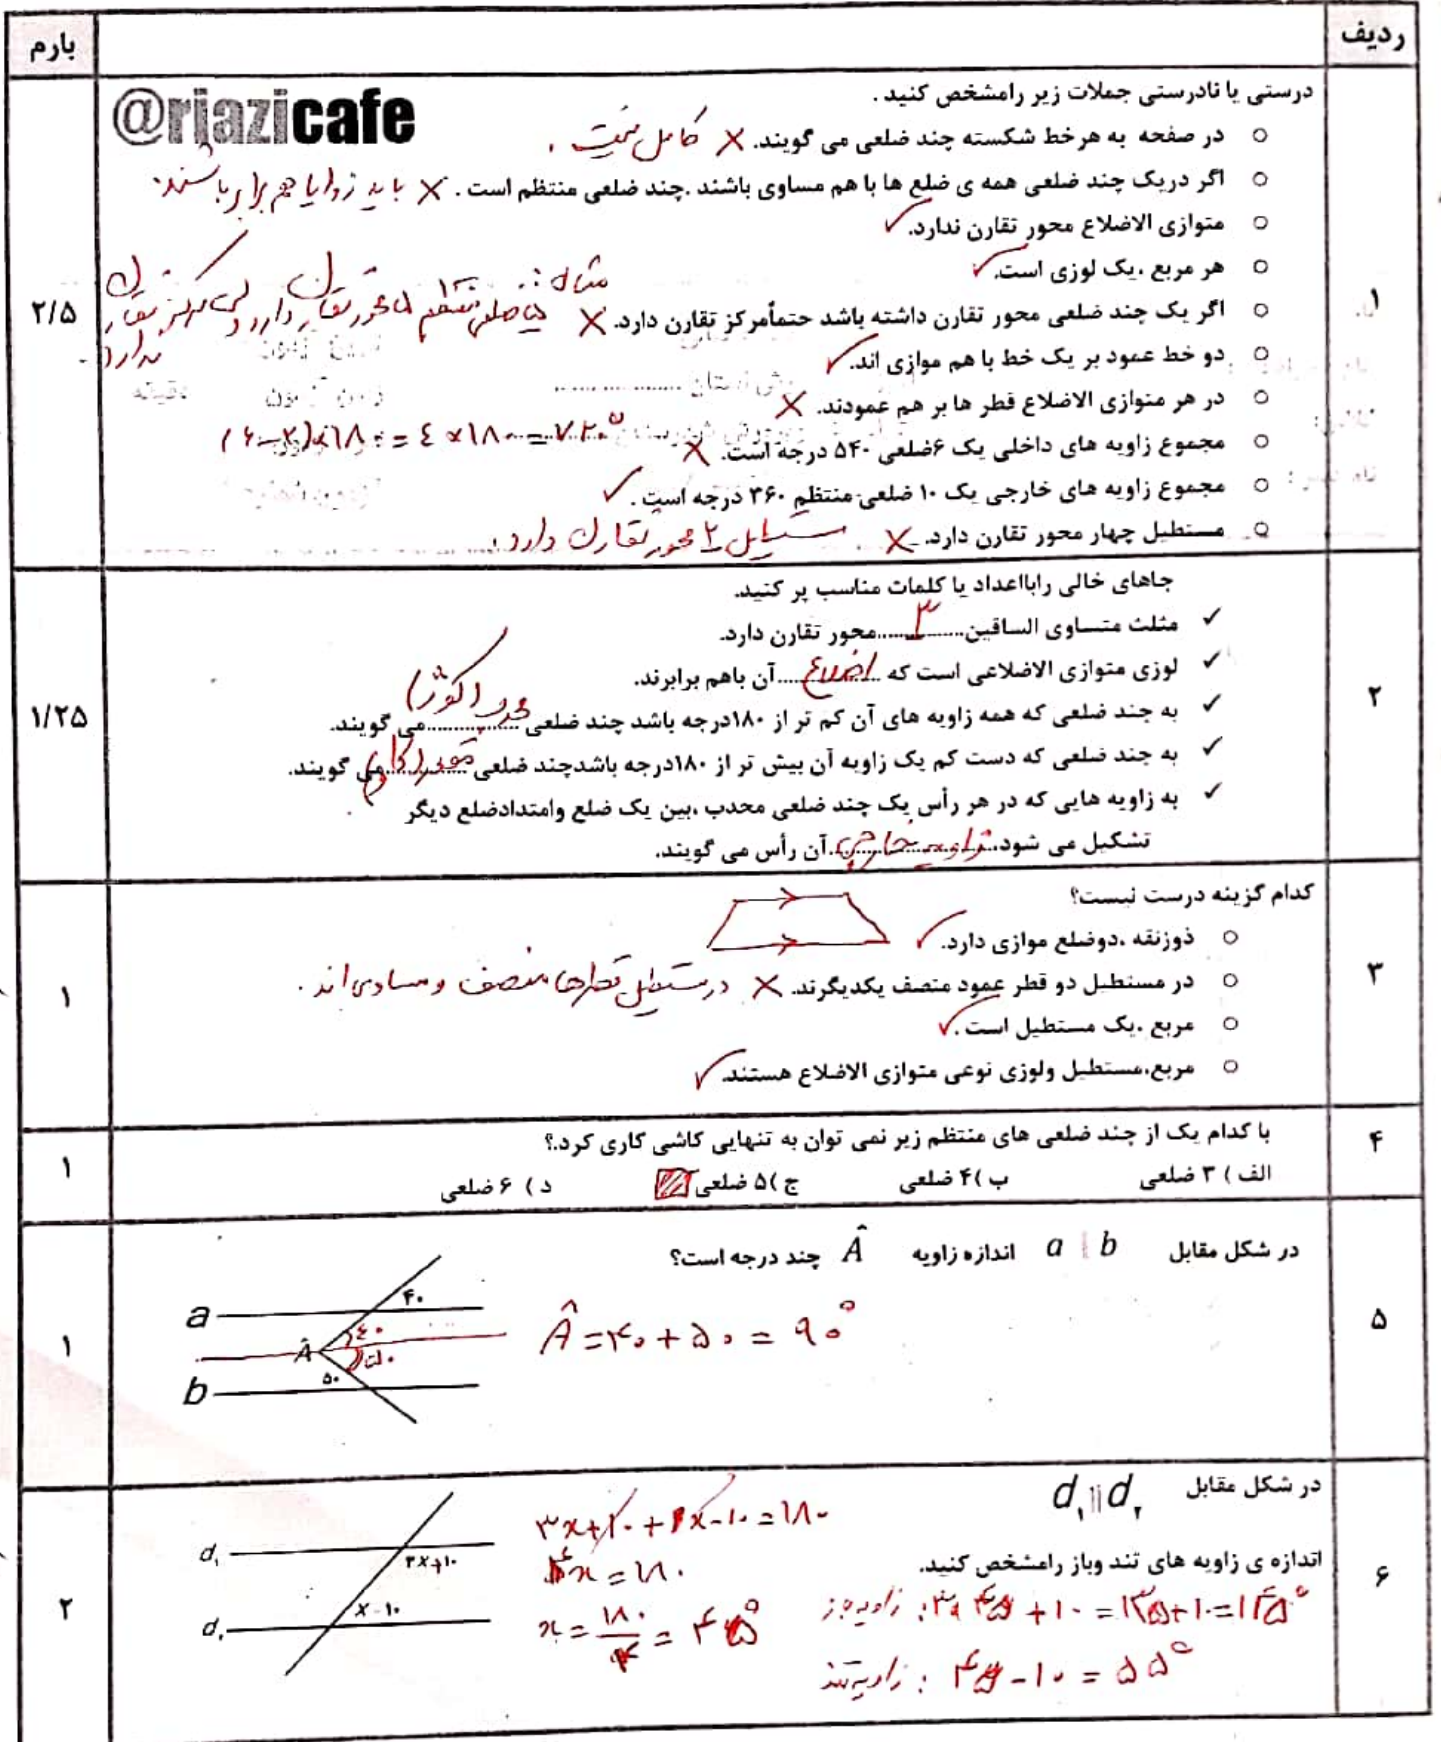 ردیف
بارم
درستی یا نادرستی جملات زیر رامشخص کنید .
@riazicafe
در صفحه به هرخط شکسته چند ضلعی می گویند. × کامل نیست .
اگر دریک چند ضلعی همه ی ضلع ها با هم مساوی باشند .چند ضلعی منتظم است . × باید زوایا هم برابر باشند.
متوازی الاضلاع محور تقارن ندارد. ✓
هر مربع ،یک لوزی است. ✓
مثال :
اگر یک چند ضلعی محور تقارن داشته باشد حتمأمرکز تقارن دارد. × ۵ ضلعی منتظم ۵ محور تقارن دارد ولی مرکز تقارن ندارد
۱
۲/۵
دو خط عمود بر یک خط با هم موازی اند. ✓
در هر متوازی الاضلاع قطر ها بر هم عمودند. ×
مجموع زاویه های داخلی یک ۶ضلعی ۵۴۰ درجه است. × (۶-۲)×۱۸۰ = ٤×۱۸۰ = ۷۲۰°
مجموع زاویه های خارجی یک ۱۰ ضلعی منتظم ۳۶۰ درجه است . ✓
مستطیل چهار محور تقارن دارد. × مستطیل ۲ محور تقارن دارد .
جاهای خالی رابااعداد یا کلمات مناسب پر کنید.
✓ مثلث متساوی الساقین....۳....محور تقارن دارد.
✓ لوزی متوازی الاضلاعی است که ...اضلاع...آن باهم برابرند.
۲
۱/۲۵
✓ به چند ضلعی که همه زاویه های آن کم تر از ۱۸۰درجه باشد چند ضلعی محدب (کوژ) می گویند.
✓ به چند ضلعی که دست کم یک زاویه آن بیش تر از ۱۸۰درجه باشدچند ضلعی مقعر (کاو) می گویند.
✓ به زاویه هایی که در هر رأس یک چند ضلعی محدب ،بین یک ضلع وامتدادضلع دیگر
تشکیل می شود....زاویه خارجی....آن رأس می گویند.
کدام گزینه درست نیست؟
ذوزنقه ،دوضلع موازی دارد. ✓
۳
۱
در مستطیل دو قطر عمود منصف یکدیگرند. × در مستطیل قطرها منصف و مساوی اند .
مربع ،یک مستطیل است . ✓
مربع،مستطیل ولوزی نوعی متوازی الاضلاع هستند. ✓
۴
۱
با کدام یک از چند ضلعی های منتظم زیر نمی توان به تنهایی کاشی کاری کرد.؟
الف ) ۳ ضلعی ب )۴ ضلعی ج )۵ ضلعی د ) ۶ ضلعی
در شکل مقابل a || b اندازه زاویه Â چند درجه است؟
۵
۱
Â = ۴۰ + ۵۰ = ۹۰°
a ۴۰
٤۰
Â
۵۰
b ۵۰
در شکل مقابل d₁ || d₂
۶
۲
۳x+۱۰+x-۱۰=۱۸۰
اتدازه ی زاویه های تند وباز رامشخص کنید.
d₁ ۳x+۱۰
۴x = ۱۸۰
زاویه باز : ۳×۴۵ + ۱۰ = ۱۳۵+۱۰ = ۱۴۵°
d₂ x-۱۰
x = ۱۸۰/۴ = ۴۵°
زاویه تند : ۴۵ - ۱۰ = ۵۵°